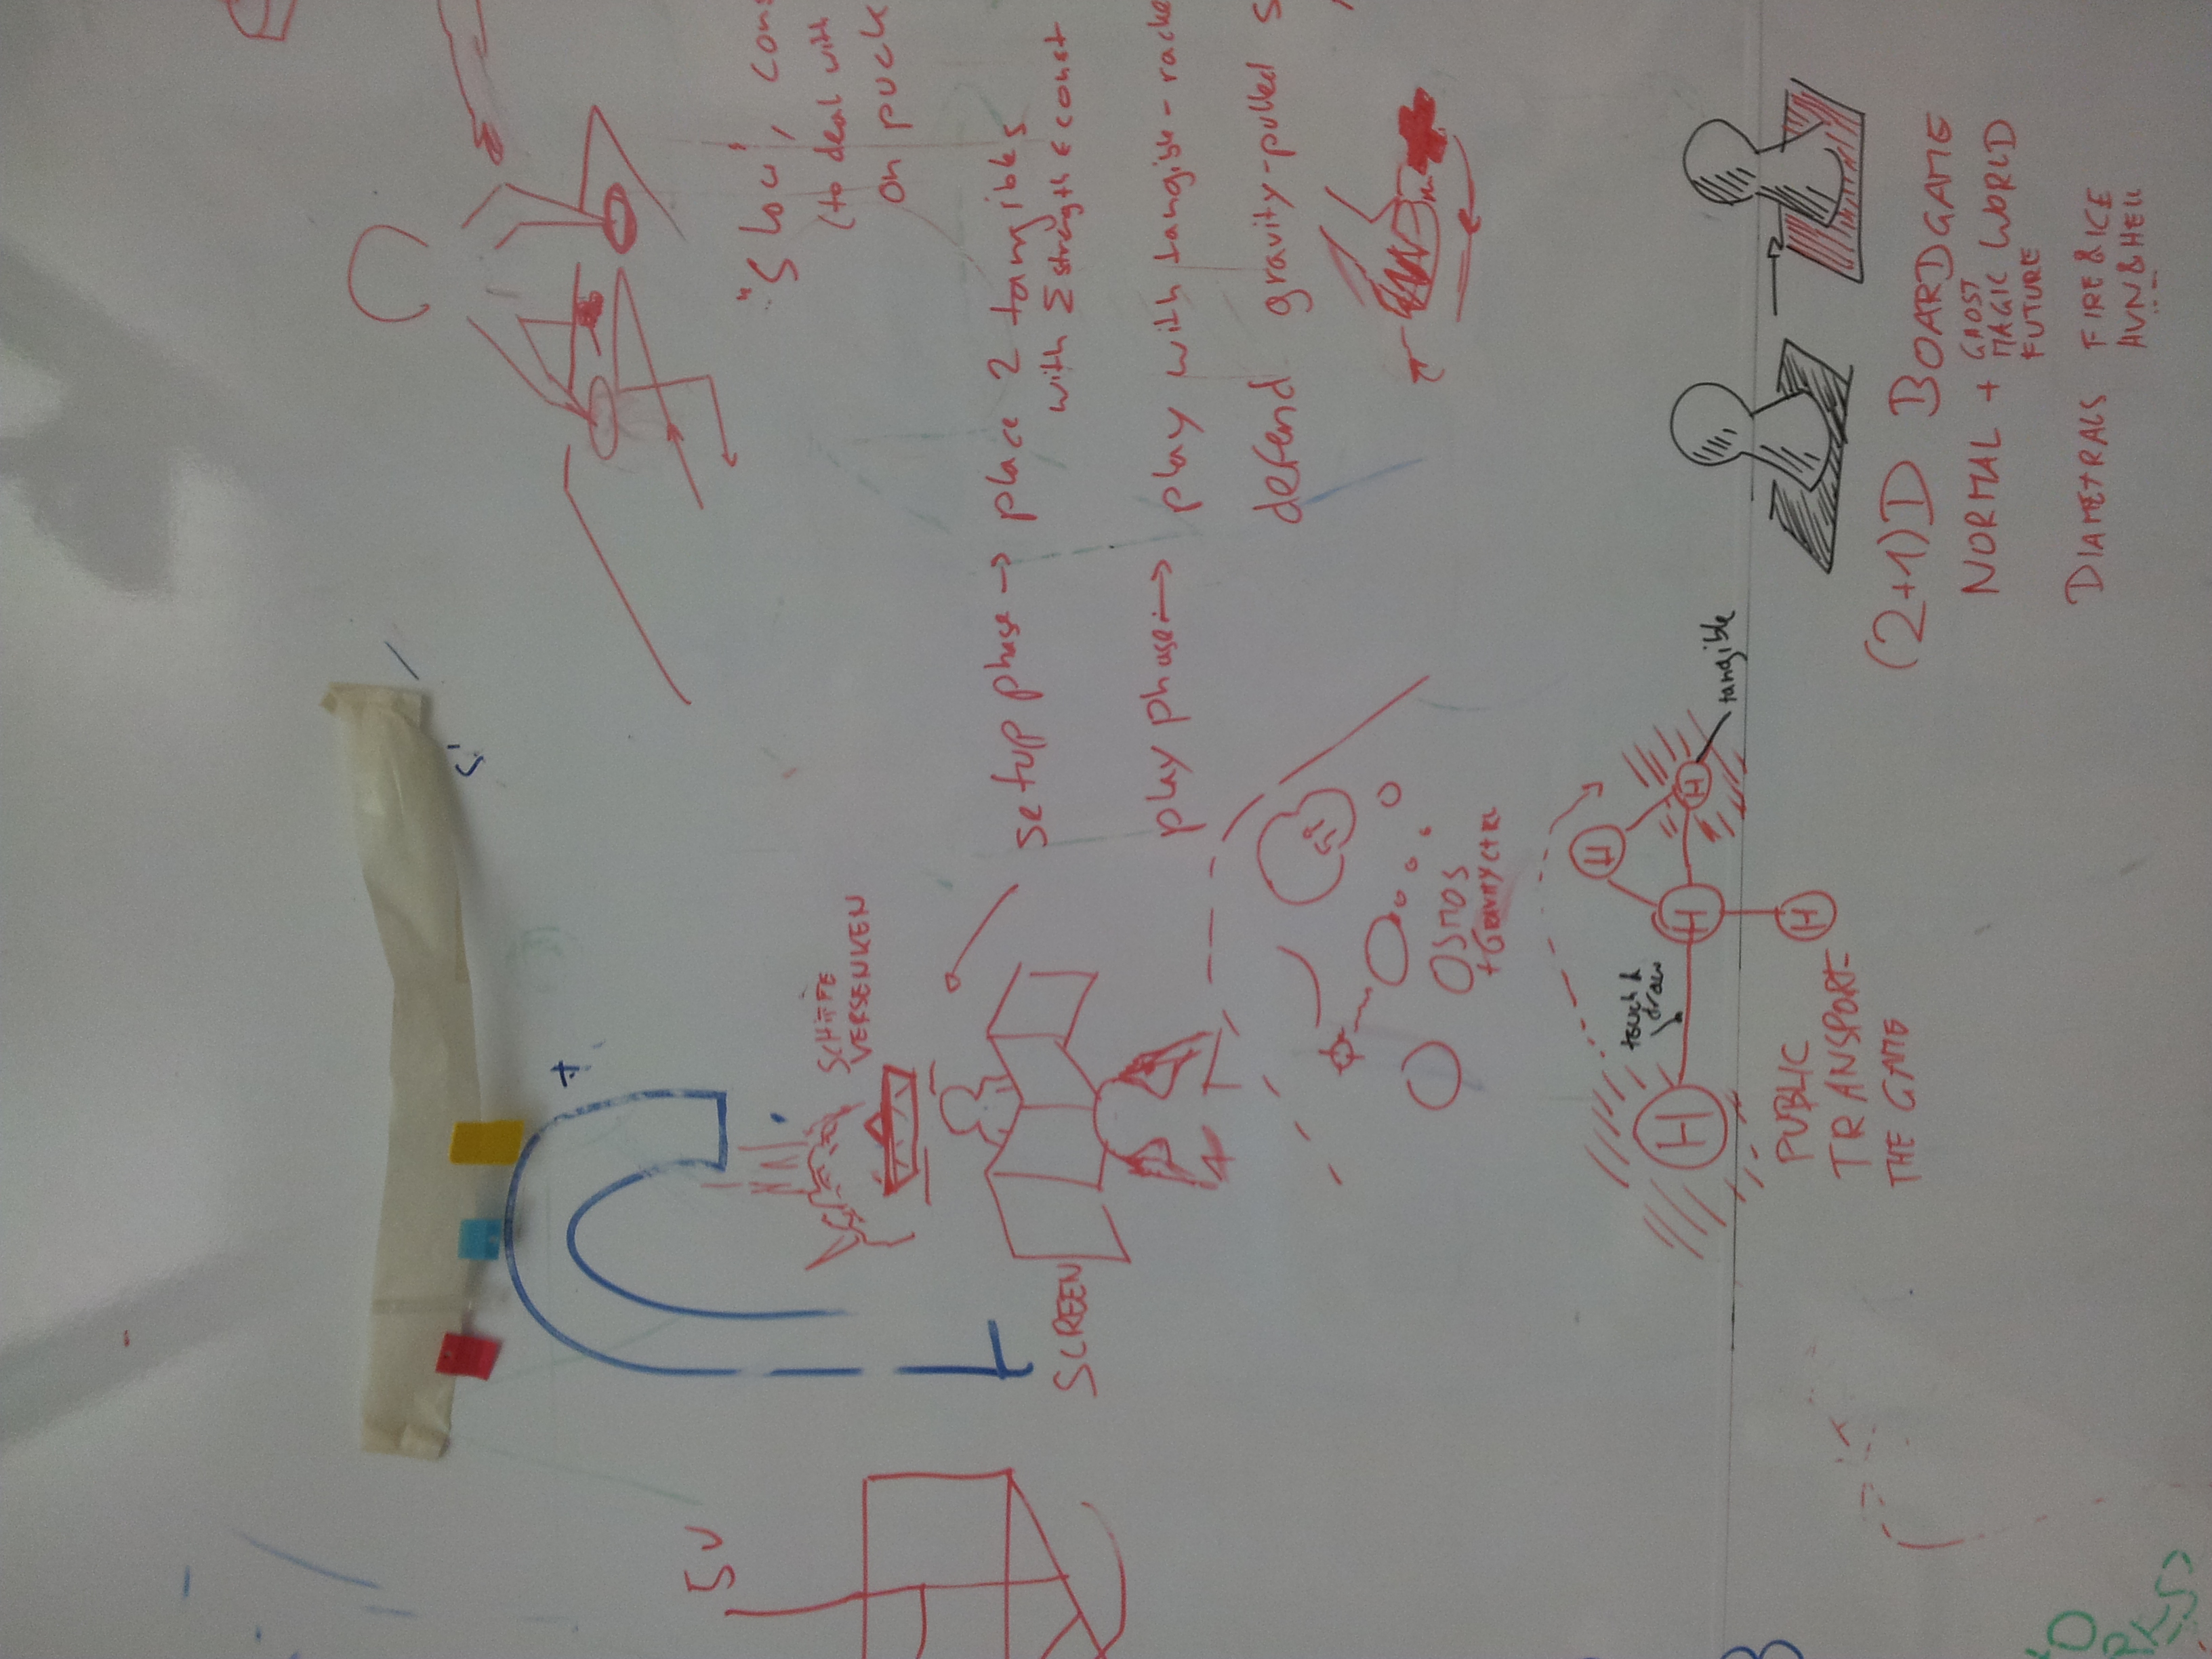 5V
SCHIFFE
VERSENKEN
SCREEN
"Slow", cons
(to deal with
on puck
setup phase → place 2 tangibles
with Σ strength ≤ const
play phase → play with tangible-racke
defend gravity-pulled s
OSMOS
+ GRAVITY CTRL
touch &
draw
H
H
H
H
H
tangible
PUBLIC
TRANSPORT-
THE GAME
(2+1)D BOARDGAME
NORMAL + GHOST
MAGIC WORLD
FUTURE
DIAMETRALS FIRE & ICE
HVN & HELL